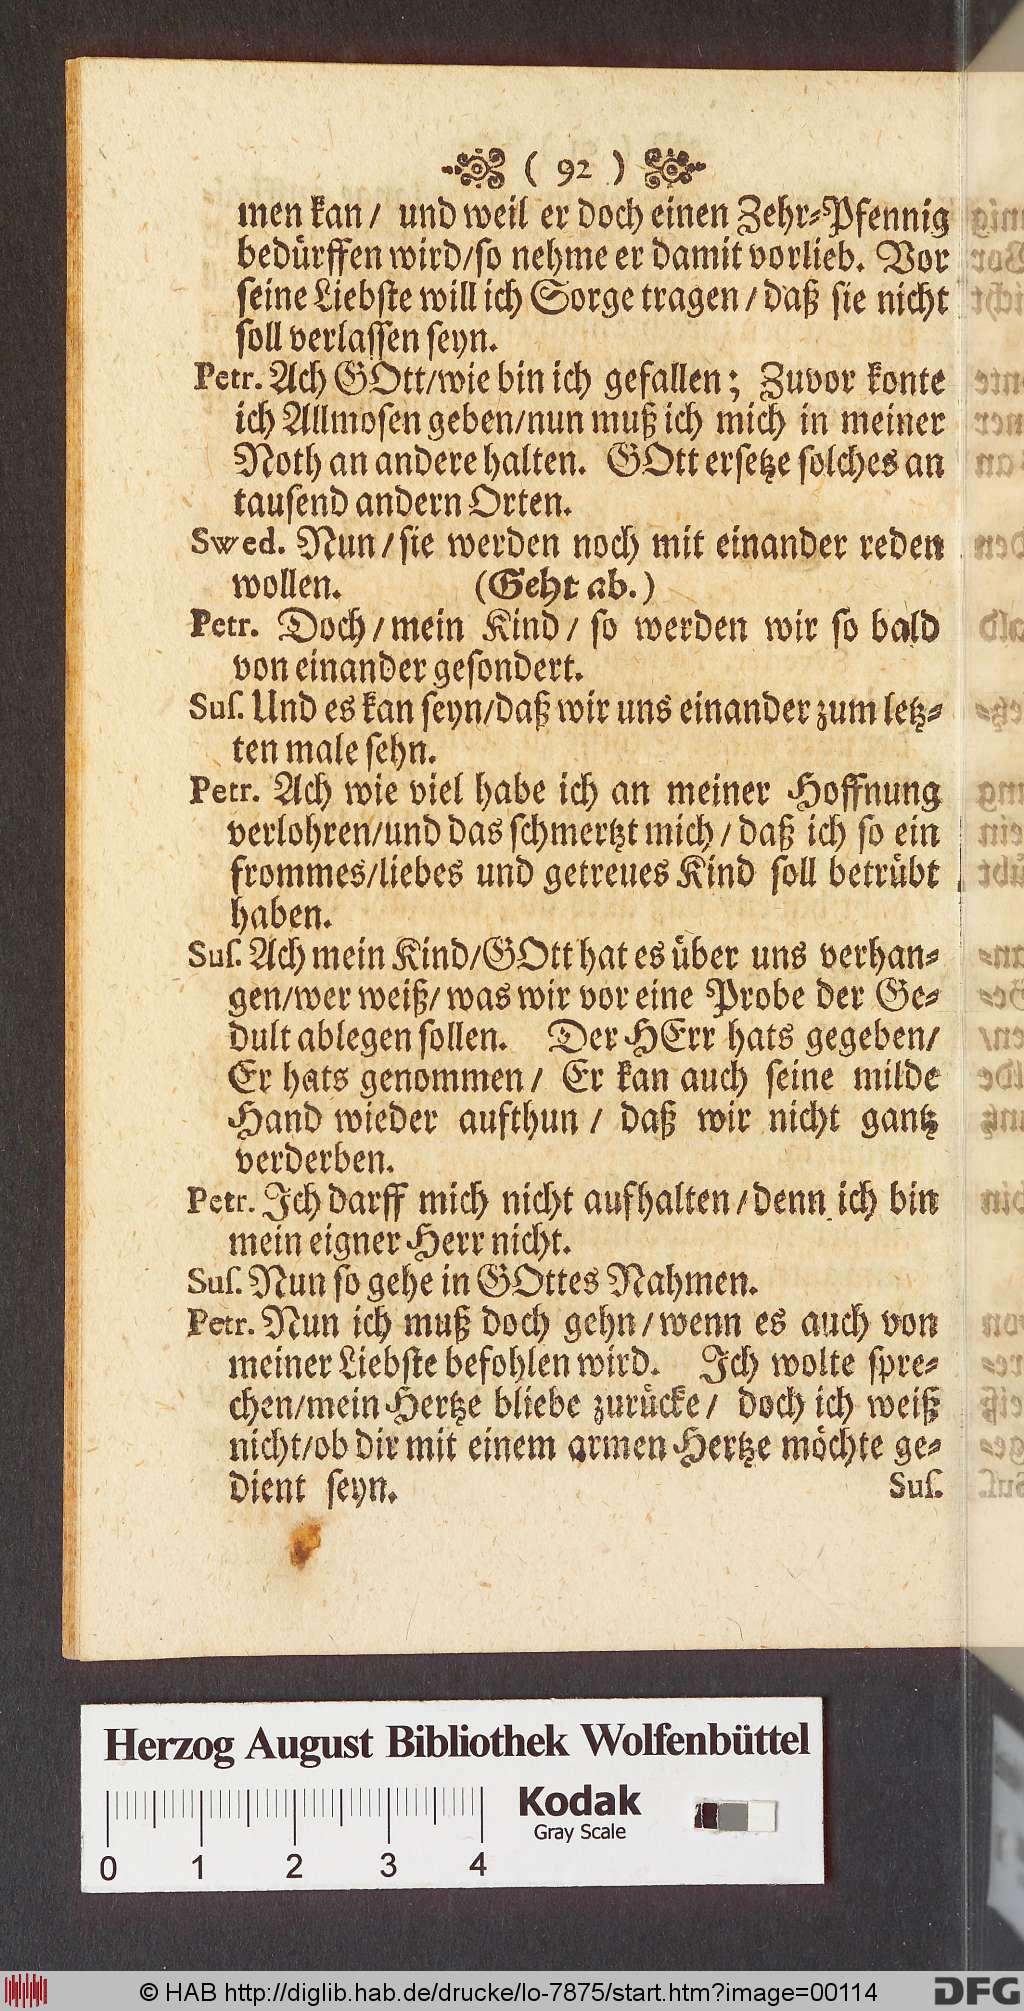 ( 92 )
men kan / und weil er doch einen Zehr⸗Pfennig
bedürffen wird/so nehme er damit vorlieb. Vor
seine Liebste will ich Sorge tragen / daß sie nicht
soll verlassen seyn.
Petr. Ach GOtt/wie bin ich gefallen; Zuvor konte
ich Allmosen geben/nun muß ich mich in meiner
Noth an andere halten. GOtt ersetze solches an
tausend andern Orten.
Swed. Nun / sie werden noch mit einander reden
wollen. (Geht ab.)
Petr. Doch / mein Kind / so werden wir so bald
von einander gesondert.
Sus. Und es kan seyn/daß wir uns einander zum letz⸗
ten male sehn.
Petr. Ach wie viel habe ich an meiner Hoffnung
verlohren/und das schmertzt mich / daß ich so ein
frommes/liebes und getreues Kind soll betrübt
haben.
Sus. Ach mein Kind/GOtt hat es über uns verhan⸗
gen/wer weiß/ was wir vor eine Probe der Ge⸗
dult ablegen sollen. Der HErr hats gegeben/
Er hats genommen / Er kan auch seine milde
Hand wieder aufthun / daß wir nicht gantz
verderben.
Petr. Ich darff mich nicht aufhalten / denn ich bin
mein eigner Herr nicht.
Sus. Nun so gehe in GOttes Nahmen.
Petr. Nun ich muß doch gehn / wenn es auch von
meiner Liebste befohlen wird. Ich wolte spre⸗
chen/mein Hertze bliebe zurücke / doch ich weiß
nicht/ob dir mit einem armen Hertze möchte ge⸗
dient seyn. Sus.
Herzog August Bibliothek Wolfenbüttel
Kodak
Gray Scale
0 1 2 3 4
© HAB http://diglib.hab.de/drucke/lo-7875/start.htm?image=00114
DFG